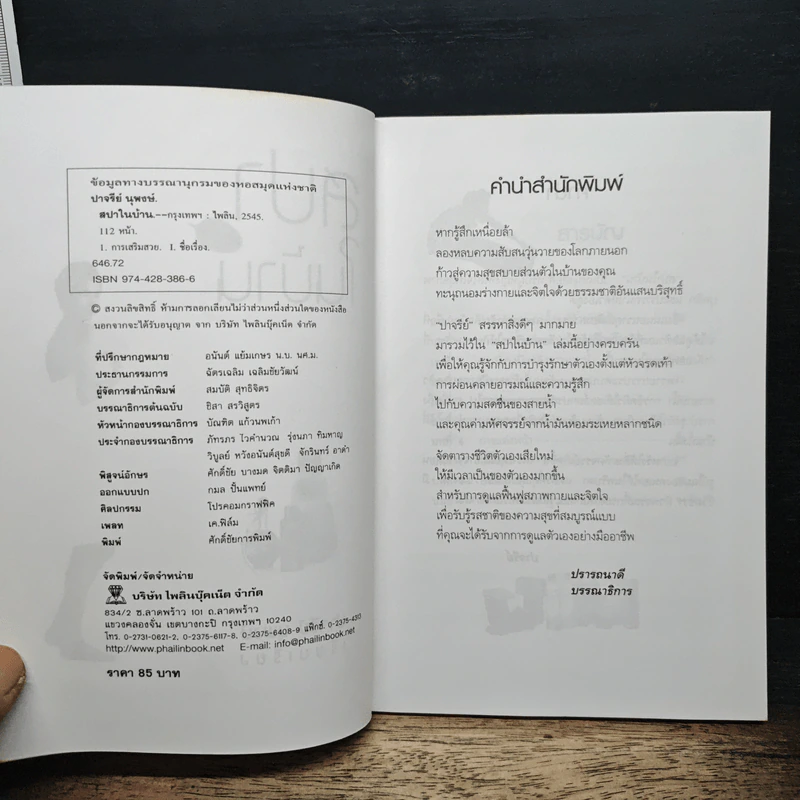 ข้อมูลทางบรรณานุกรมของหอสมุดแห่งชาติ
ปาจรีย์ นุพงษ์.
สปาในบ้าน.--กรุงเทพฯ : ไพลิน, 2545.
112 หน้า.
1. การเสริมสวย. I. ชื่อเรื่อง.
646.72
ISBN 974-428-386-6
© สงวนลิขสิทธิ์ ห้ามการลอกเลียนไม่ว่าส่วนหนึ่งส่วนใดของหนังสือ
นอกจากจะได้รับอนุญาต จาก บริษัท ไพลินบุ๊คเน็ต จำกัด
ที่ปรึกษากฎหมาย อนันต์ แย้มเกษร น.บ. นศ.ม.
ประธานกรรมการ ฉัตรเฉลิม เฉลิมชัยวัฒน์
ผู้จัดการสำนักพิมพ์ สมบัติ สุทธิจิตร
บรรณาธิการต้นฉบับ ชิสา สรวิสูตร
หัวหน้ากองบรรณาธิการ บัณฑิต แก้วนพเก้า
ประจำกองบรรณาธิการ ภัทรภร ไวคำนวณ รุ่งนภา ทิมหาญ
วิบูลย์ หวังอนันต์สุขดี จักรินทร์ อาดำ
พิสูจน์อักษร ศักดิ์ชัย บางมด จิตติมา ปัญญาเกิด
ออกแบบปก กมล ปั้นแพทย์
ศิลปกรรม โปรคอมกราฟฟิค
เพลท เค.ฟิล์ม
พิมพ์ ศักดิ์ชัยการพิมพ์
จัดพิมพ์/จัดจำหน่าย
บริษัท ไพลินบุ๊คเน็ต จำกัด
834/2 ซ.ลาดพร้าว 101 ถ.ลาดพร้าว
แขวงคลองจั่น เขตบางกะปิ กรุงเทพฯ 10240
โทร. 0-2731-0621-2, 0-2375-6117-8, 0-2375-6408-9 แฟ็กซ์. 0-2375-4313
http://www.phailinbook.net E-mail: info@phailinbook.net
ราคา 85 บาท
คำนำสำนักพิมพ์
หากรู้สึกเหนื่อยล้า
ลองหลบความสับสนวุ่นวายของโลกภายนอก
ก้าวสู่ความสุขสบายส่วนตัวในบ้านของคุณ
ทะนุถนอมร่างกายและจิตใจด้วยธรรมชาติอันแสนบริสุทธิ์
"ปาจรีย์" สรรหาสิ่งดีๆ มากมาย
มารวมไว้ใน "สปาในบ้าน" เล่มนี้อย่างครบครัน
เพื่อให้คุณรู้จักกับการบำรุงรักษาตัวเองตั้งแต่หัวจรดเท้า
การผ่อนคลายอารมณ์และความรู้สึก
ไปกับความสดชื่นของสายน้ำ
และคุณค่ามหัศจรรย์จากน้ำมันหอมระเหยหลากชนิด
จัดตารางชีวิตตัวเองเสียใหม่
ให้มีเวลาเป็นของตัวเองมากขึ้น
สำหรับการดูแลฟื้นฟูสภาพกายและจิตใจ
เพื่อรับรู้รสชาติของความสุขที่สมบูรณ์แบบ
ที่คุณจะได้รับจากการดูแลตัวเองอย่างมืออาชีพ
ปรารถนาดี
บรรณาธิการ